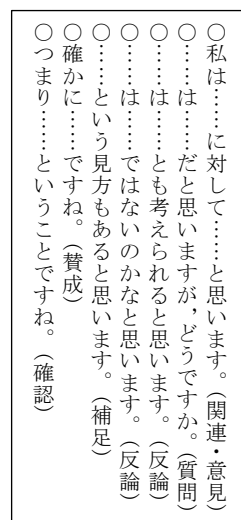 ○私は……に対して……と思います。（関連・意見）
○……は……だと思いますが，どうですか。（質問）
○……は……とも考えられると思います。（反論）
○……は……ではないのかなと思います。（反論）
○……という見方もあると思います。（補足）
○確かに……ですね。（賛成）
○つまり……ということですね。（確認）